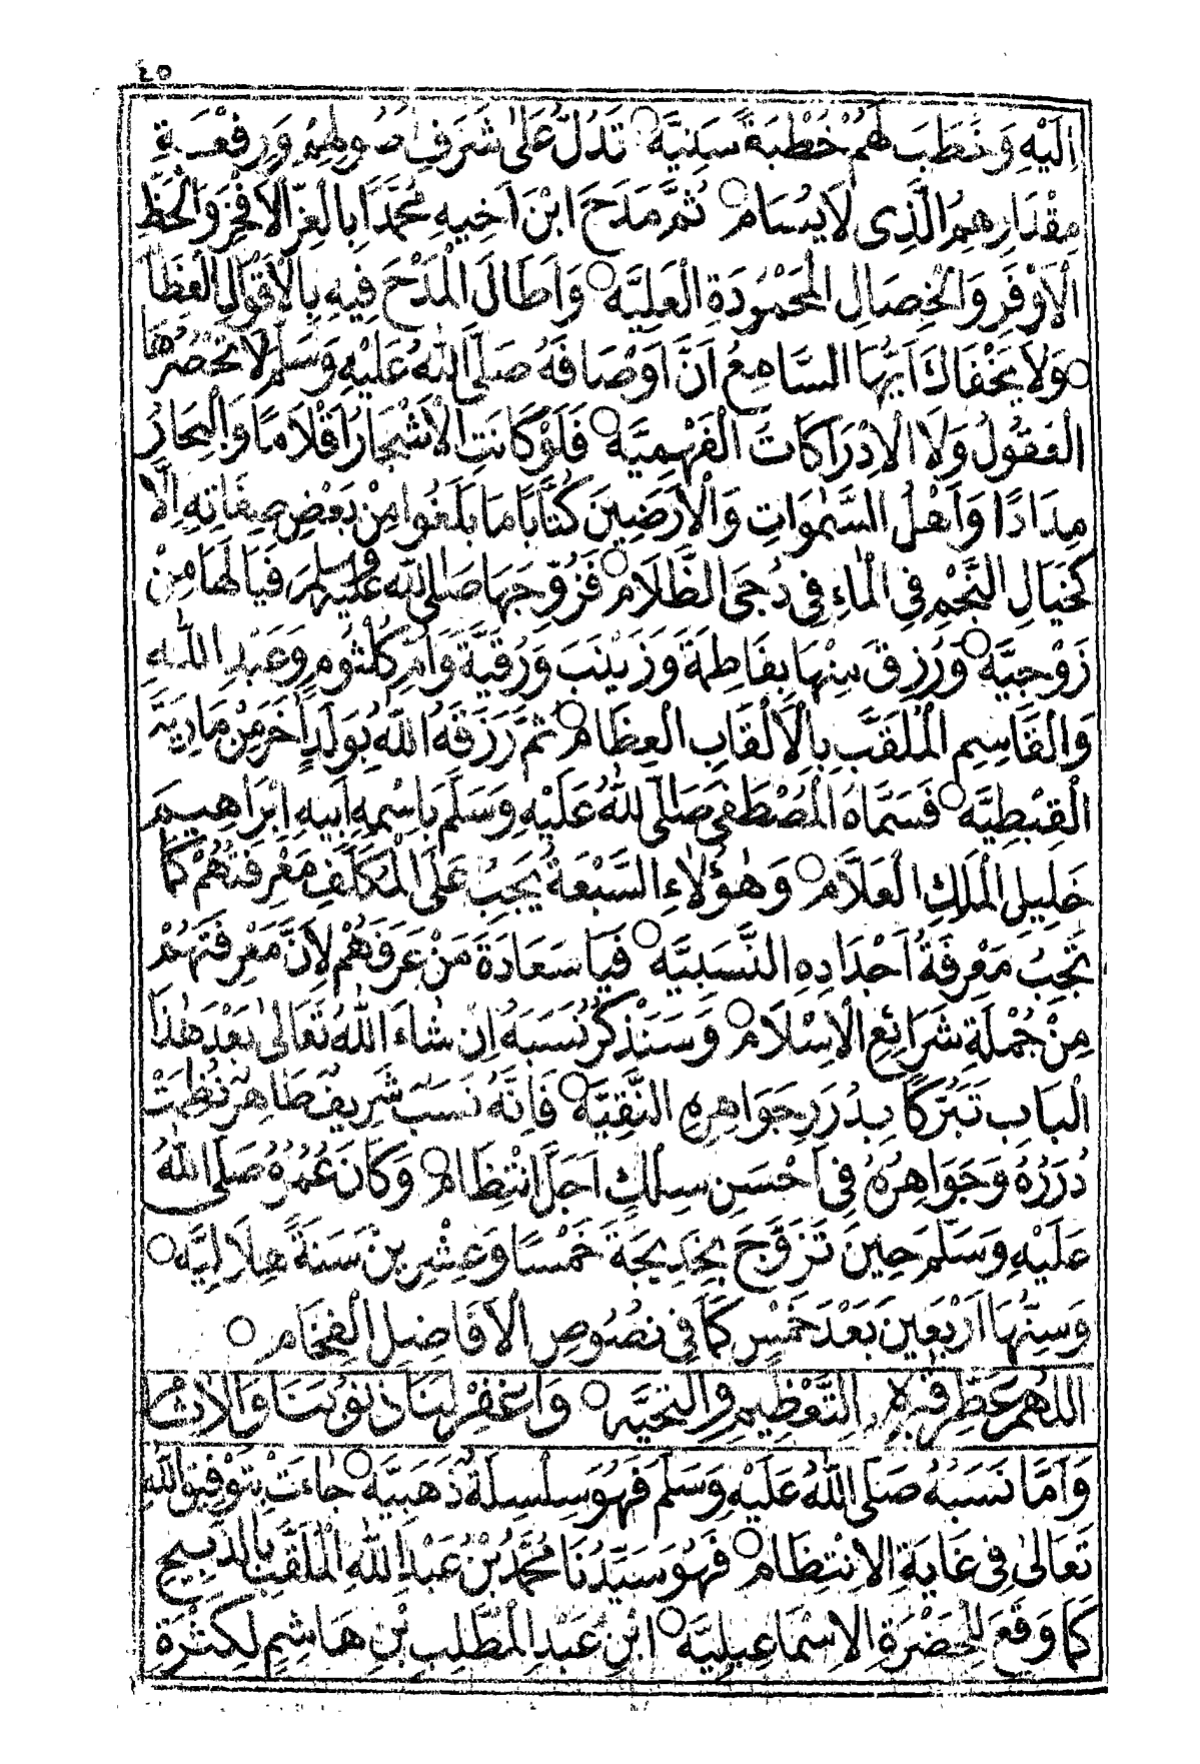 ٢٥
اِلَيْهِ وَخَطَبَ لَهُمْ خُطْبَةً سَنِيَّةً ○ تَدُلُّ عَلٰى شَرَفِ اُصُولِهِمْ وَرِفْعَةِ
مِقْدَارِهِمُ الَّذِى لَا يُسَامُ ○ ثُمَّ مَدَحَ ابْنَ اَخِيهِ مُحَمَّدًا بِالْعِزِّ الْاَفْخَرِ وَالْحَظِّ
الْاَوْفَرِ وَالْخِصَالِ الْمَحْمُودَةِ الْعَلِيَّةِ ○ وَاَطَالَ الْمَدْحَ فِيهِ بِالْاَقْوَالِ الْفِظَامِ
○ وَلَا يَخْفَاكَ اَيُّهَا السَّامِعُ اَنَّ اَوْصَافَهُ صَلَّى اللّٰهُ عَلَيْهِ وَسَلَّمَ لَا تَحْصُرُهَا
الْعُقُولُ وَلَا الْاِدْرَاكَاتُ الْفَهْمِيَّةُ ○ فَلَوْ كَانَتِ الْاَشْجَارُ اَقْلَامًا وَالْبِحَارُ
مِدَادًا وَاَهْلُ السَّمٰوَاتِ وَالْاَرَضِينَ كُتَّابًا مَا بَلَغُوا مِنْ بَعْضِ صِفَاتِهِ اِلَّا
كَخَيَالِ النَّجْمِ فِى الْمَاءِ فِى دُجَى الظَّلَامِ ○ فَزَوَّجَهَا صَلَّى اللّٰهُ عَلَيْهِ وَسَلَّمَ فَيَا لَهَا مِنْ
زَوْجِيَّةٍ ○ وَرُزِقَ مِنْهَا بِفَاطِمَةَ وَزَيْنَبَ وَرُقَيَّةَ وَاُمِّ كُلْثُومٍ وَعَبْدِ اللّٰهِ
وَالْقَاسِمِ الْمُلَقَّبِ بِالْاَلْقَابِ الْعِظَامِ ○ ثُمَّ رَزَقَهُ اللّٰهُ بِوَلَدٍ اٰخَرَ مِنْ مَارِيَةَ
الْقِبْطِيَّةِ ○ فَسَمَّاهُ الْمُصْطَفٰى صَلَّى اللّٰهُ عَلَيْهِ وَسَلَّمَ بِاسْمِهِ اَبِيهِ اِبْرَاهِيمَ
خَلِيلِ الْمَلِكِ الْعَلَّامِ ○ وَهٰؤُلَاءِ السَّبْعَةُ يَجِبُ عَلَى الْمُكَلَّفِ مَعْرِفَتُهُمْ كَمَا
تَجِبُ مَعْرِفَةُ اَجْدَادِهِ النَّسَبِيَّةِ ○ فَيَا سَعَادَةَ مَنْ عَرَفَهُمْ لِاَنَّ مَعْرِفَتَهُمْ
مِنْ جُمْلَةِ شَرَائِعِ الْاِسْلَامِ ○ وَسَنَذْكُرُ نَسَبَهُ اِنْ شَاءَ اللّٰهُ تَعَالٰى بَعْدَ هٰذَا
الْبَابِ تَبَرُّكًا بِدُرَرِ جَوَاهِرِهِ النَّقِيَّةِ ○ فَاِنَّهُ نَسَبٌ شَرِيفٌ طَاهِرٌ نُظِمَتْ
دُرَرُهُ وَجَوَاهِرُهُ فِى اَحْسَنِ سِلْكٍ اَجَلَّ انْتِظَامٍ ○ وَكَانَ عُمُرُهُ صَلَّى اللّٰهُ
عَلَيْهِ وَسَلَّمَ حِينَ تَزَوَّجَ بِخَدِيجَةَ خَمْسًا وَعِشْرِينَ سَنَةً هِلَالِيَّةً ○
وَسِنُّهَا اَرْبَعِينَ بَعْدَ خَمْسٍ كَمَا فِى نُصُوصِ الْاَفَاضِلِ الْفِخَامِ ○
اَللّٰهُمَّ عَطِّرْ قَبْرَهُ بِالتَّعْظِيمِ وَالتَّحِيَّةِ ○ وَاغْفِرْ لَنَا ذُنُوبَنَا وَالْاٰثَامَ
وَاَمَّا نَسَبُهُ صَلَّى اللّٰهُ عَلَيْهِ وَسَلَّمَ فَهُوَ سِلْسِلَةٌ ذَهَبِيَّةٌ ○ جَاءَتْ بِتَوْفِيقِ اللّٰهِ
تَعَالٰى فِى غَايَةِ الْاِنْتِظَامِ ○ فَهُوَ سَيِّدُنَا مُحَمَّدُ بْنُ عَبْدِ اللّٰهِ الْمُلَقَّبُ بِالذَّبِيحِ
كَمَا وَقَعَ لِلْحَضْرَةِ الْاِسْمَاعِيلِيَّةِ ○ ابْنِ عَبْدِ الْمُطَّلِبِ بْنِ هَاشِمٍ لِكَثْرَةِ